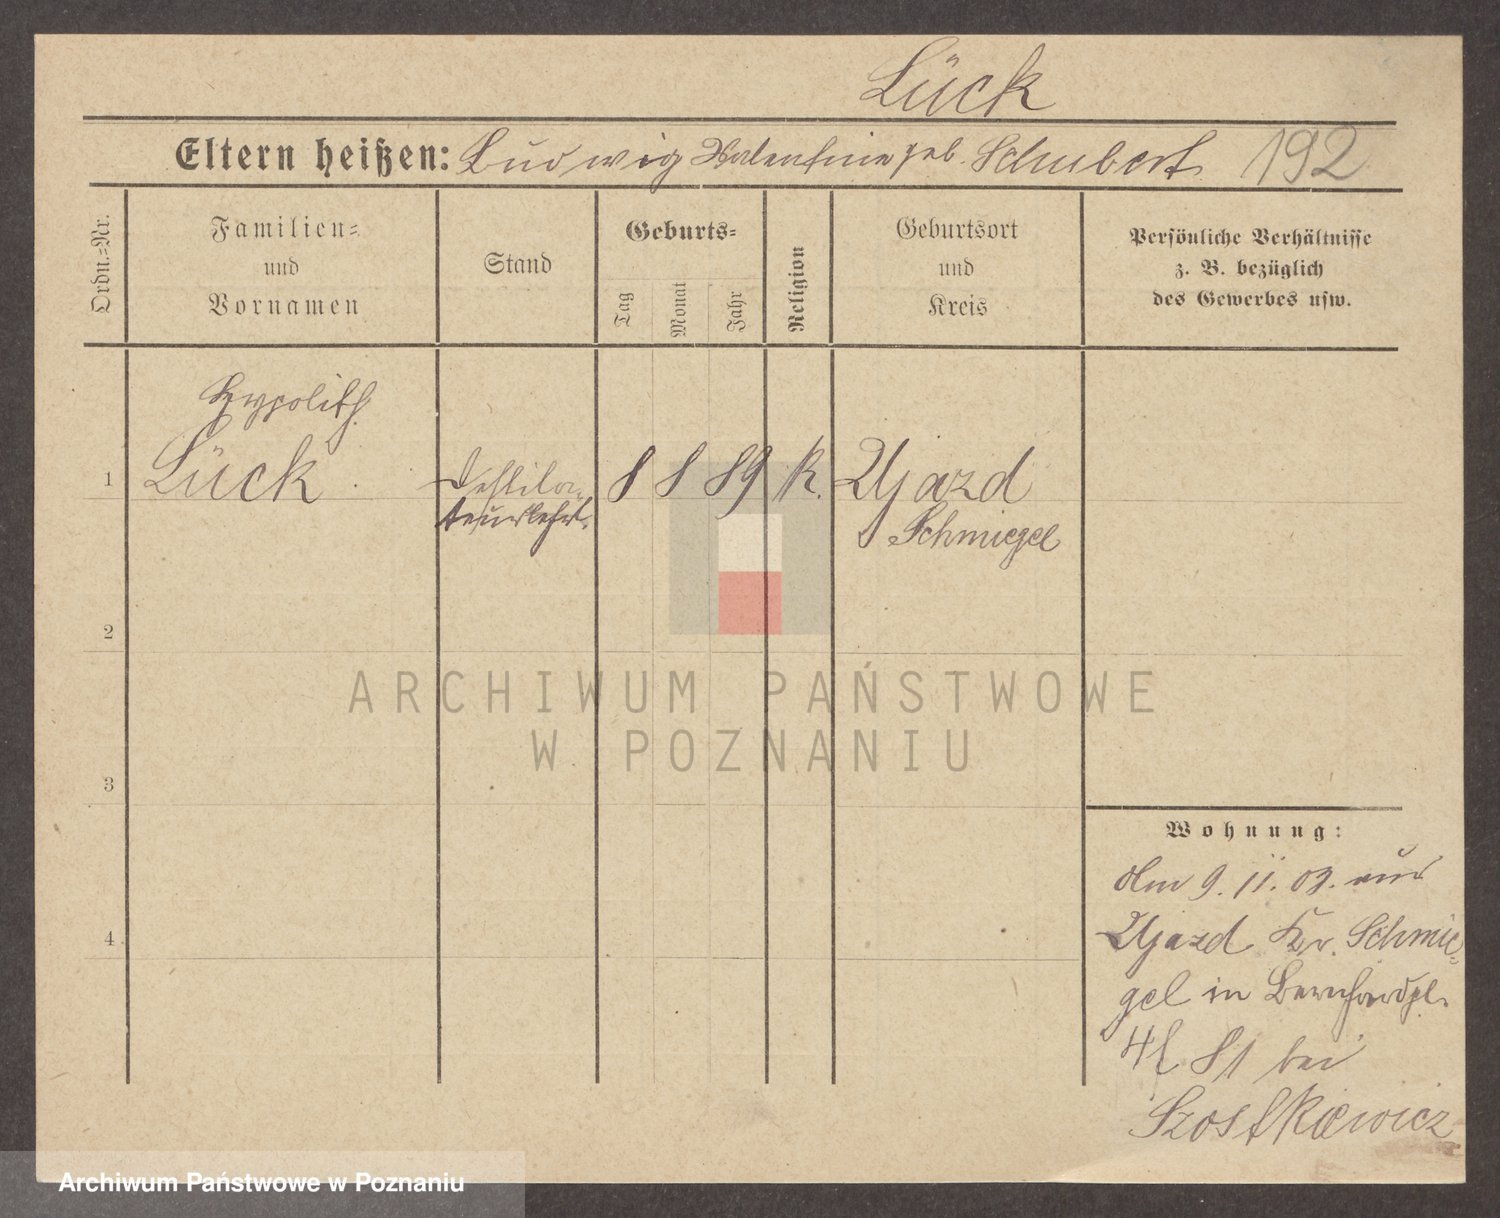 Lück
Eltern heißen: Ludwig Valentine geb. Schubert 192
Ordn.-Nr.
Familien-
und
Vornamen
Stand
Geburts-
Tag
Monat
Jahr
Religion
Geburtsort
und
Kreis
Persönliche Verhältnisse
z. B. bezüglich
des Gewerbes usw.
Hypolith
1 Lück. Destila- 8 8 89 k. Ujazd
teurlehrl. Schmiegel
2
ARCHIWUM PAŃSTWOWE
W POZNANIU
3
Wohnung:
Am 9. 11. 03. aus
4 Ujazd Kr. Schmie-
gel in Bernhardpl.
4 81 bei
Szostkiewicz
Archiwum Państwowe w Poznaniu